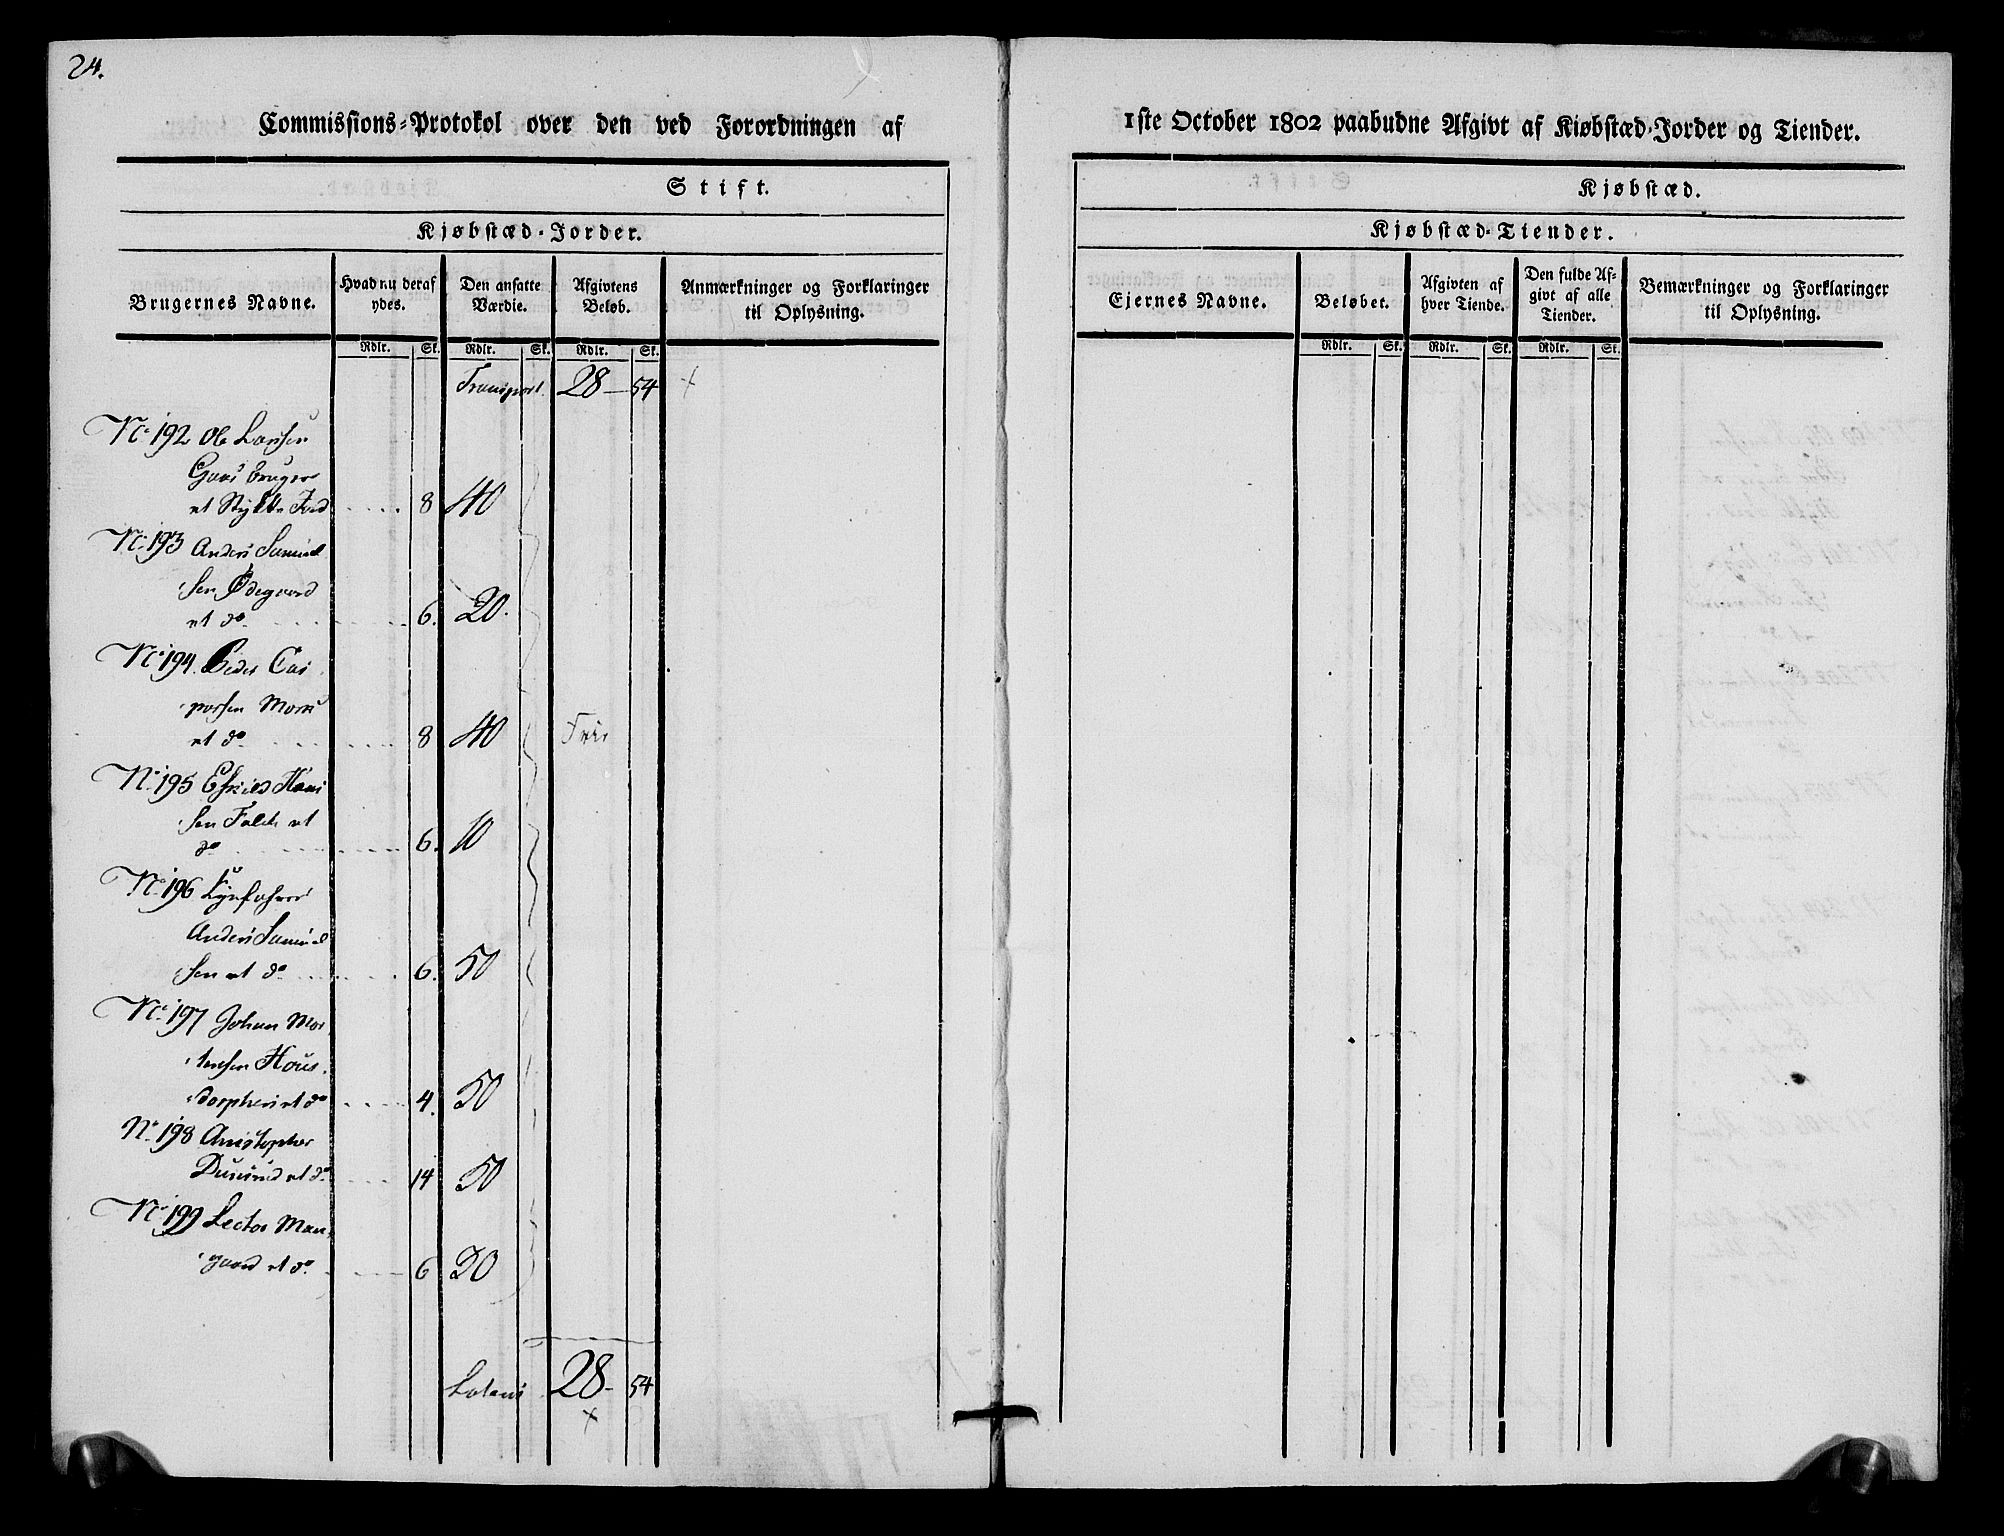 24.
Commissions-Protokol over den ved Forordningen af
1ste October 1802 paabudne Afgivt af Kiøbstæd-Jorder og Tiender.
Stift.
Kjøbstæd.
Kjøbstæd-Jorder.
Kjøbstæd-Tiender.
Brugernes Navne.
Hvad nu deraf
ydes.
Den ansatte
Værdie.
Afgivtens
Beløb.
Anmærkninger og Forklaringer
til Oplysning.
Ejernes Navne.
Beløbet.
Afgivten af
hver Tiende.
Den fulde Af-
givt af alle
Tiender.
Bemærkninger og Forklaringer
til Oplysning.
Rdlr. Sk. Rdlr. Sk. Rdlr. Sk.
Rdlr. Sk. Rdlr. Sk. Rdlr. Sk.
Transport. 28 - 54
No 192 Ole Larsen
Gaas bruger
et Stykke Jord 8 40
No 193 Anders Samuel
sen Ødegaard
et do 6. 20.
No 194. Peder Cas
persen Moss
et do 8 40 Frie
No 195 Eskild Hans
sen Falck et
do 6. 10
No 196
Anders Samuel
sen et do 6. 50
No 197 Johan Mor
tensen Hous
et do 4. 50
No 198 Christopher
et do 14 50
No 199 Lector Man
gaard et do 6 20
Lateris 28 - 54